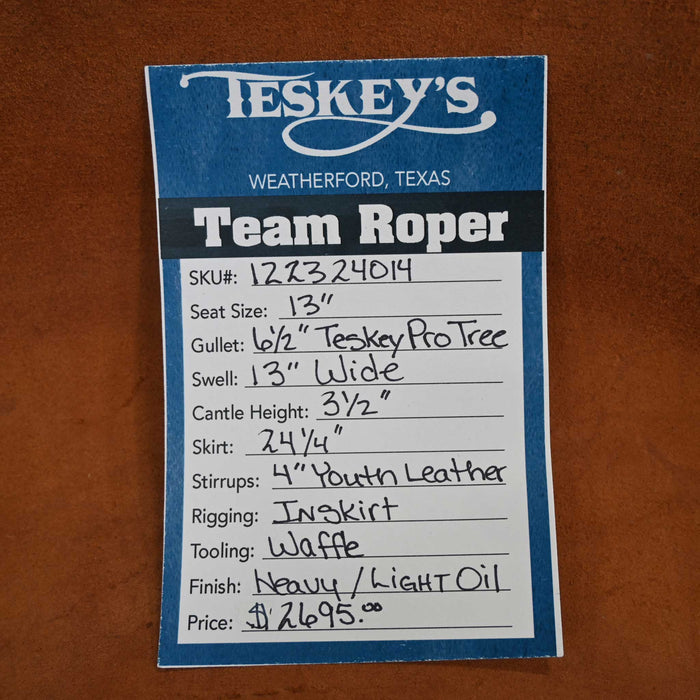 TESKEY'S
WEATHERFORD, TEXAS
Team Roper
SKU#: 122324014
Seat Size: 13"
Gullet: 6½" Teskey Pro Tree
Swell: 13" Wide
Cantle Height: 3½"
Skirt: 24¼"
Stirrups: 4" Youth Leather
Rigging: Inskirt
Tooling: Waffle
Finish: Heavy / Light Oil
Price: $2695.00